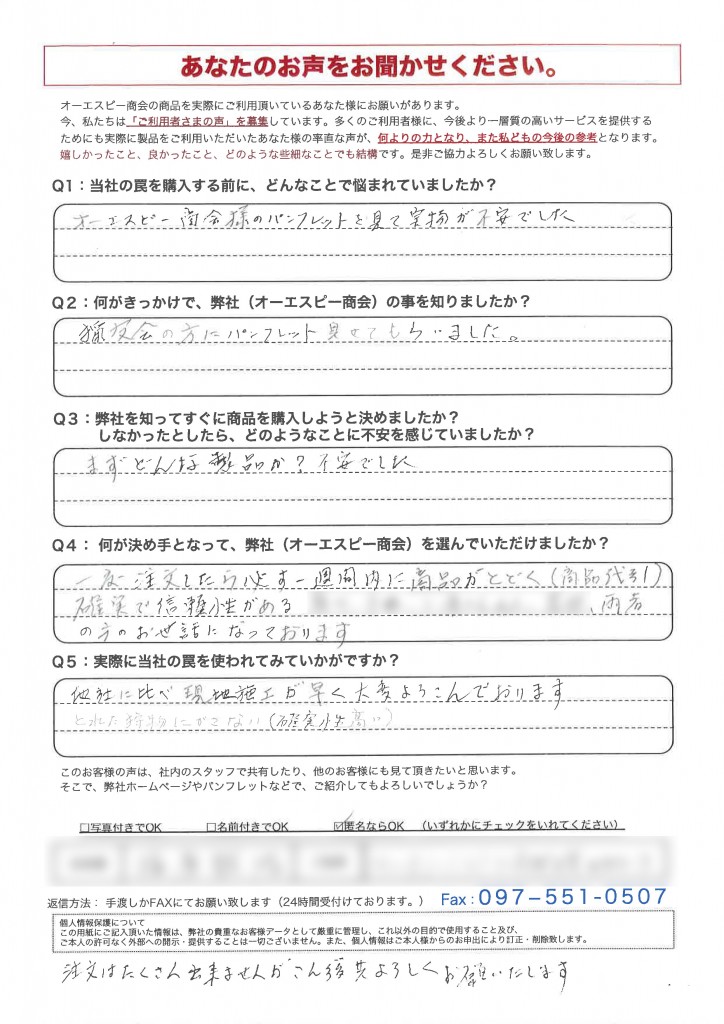 あなたのお声をお聞かせください。
オーエスピー商会の商品を実際にご利用頂いているあなた様にお願いがあります。
今、私たちは「ご利用者さまの声」を募集しています。多くのご利用者様に、今後より一層質の高いサービスを提供する
ためにも実際に製品をご利用いただいたあなた様の率直な声が、何よりの力となり、また私どもの今後の参考となります。
嬉しかったこと、良かったこと、どのような些細なことでも結構です。是非ご協力よろしくお願い致します。
Q1：当社の罠を購入する前に、どんなことで悩まれていましたか？
オーエスピー商会様のパンフレットを見て実物が不安でした
Q2：何がきっかけで、弊社（オーエスピー商会）の事を知りましたか？
猟友会の方にパンフレット見せてもらいました。
Q3：弊社を知ってすぐに商品を購入しようと決めましたか？
しなかったとしたら、どのようなことに不安を感じていましたか？
まずどんな製品か？不安でした
Q4： 何が決め手となって、弊社（オーエスピー商会）を選んでいただけましたか？
一度注文したら必ず一週間内に商品がとどく（商品代引）
確実で信頼性がある 、両者
の方のお世話になっております
Q5：実際に当社の罠を使われてみていかがですか？
他社に比べ現地施工が早く大変よろこんでおります
とれた獲物にがさない（確実性高い）
このお客様の声は、社内のスタッフで共有したり、他のお客様にも見て頂きたいと思います。
そこで、弊社ホームページやパンフレットなどで、ご紹介してもよろしいでしょうか？
□写真付きでOK □名前付きでOK ☑匿名ならOK （いずれかにチェックをいれてください）
返信方法： 手渡しかFAXにてお願い致します（24時間受付ております。） Fax：097−551-0507
個人情報保護について
この用紙にご記入頂いた情報は、弊社の貴重なお客様データとして厳重に管理し、これ以外の目的で使用すること及び、
ご本人の許可なく外部への開示・提供することは一切ございません。また、個人情報はご本人様からのお申出により訂正・削除致します。
注文はたくさん出来ませんがこん後共よろしくお願いいたします